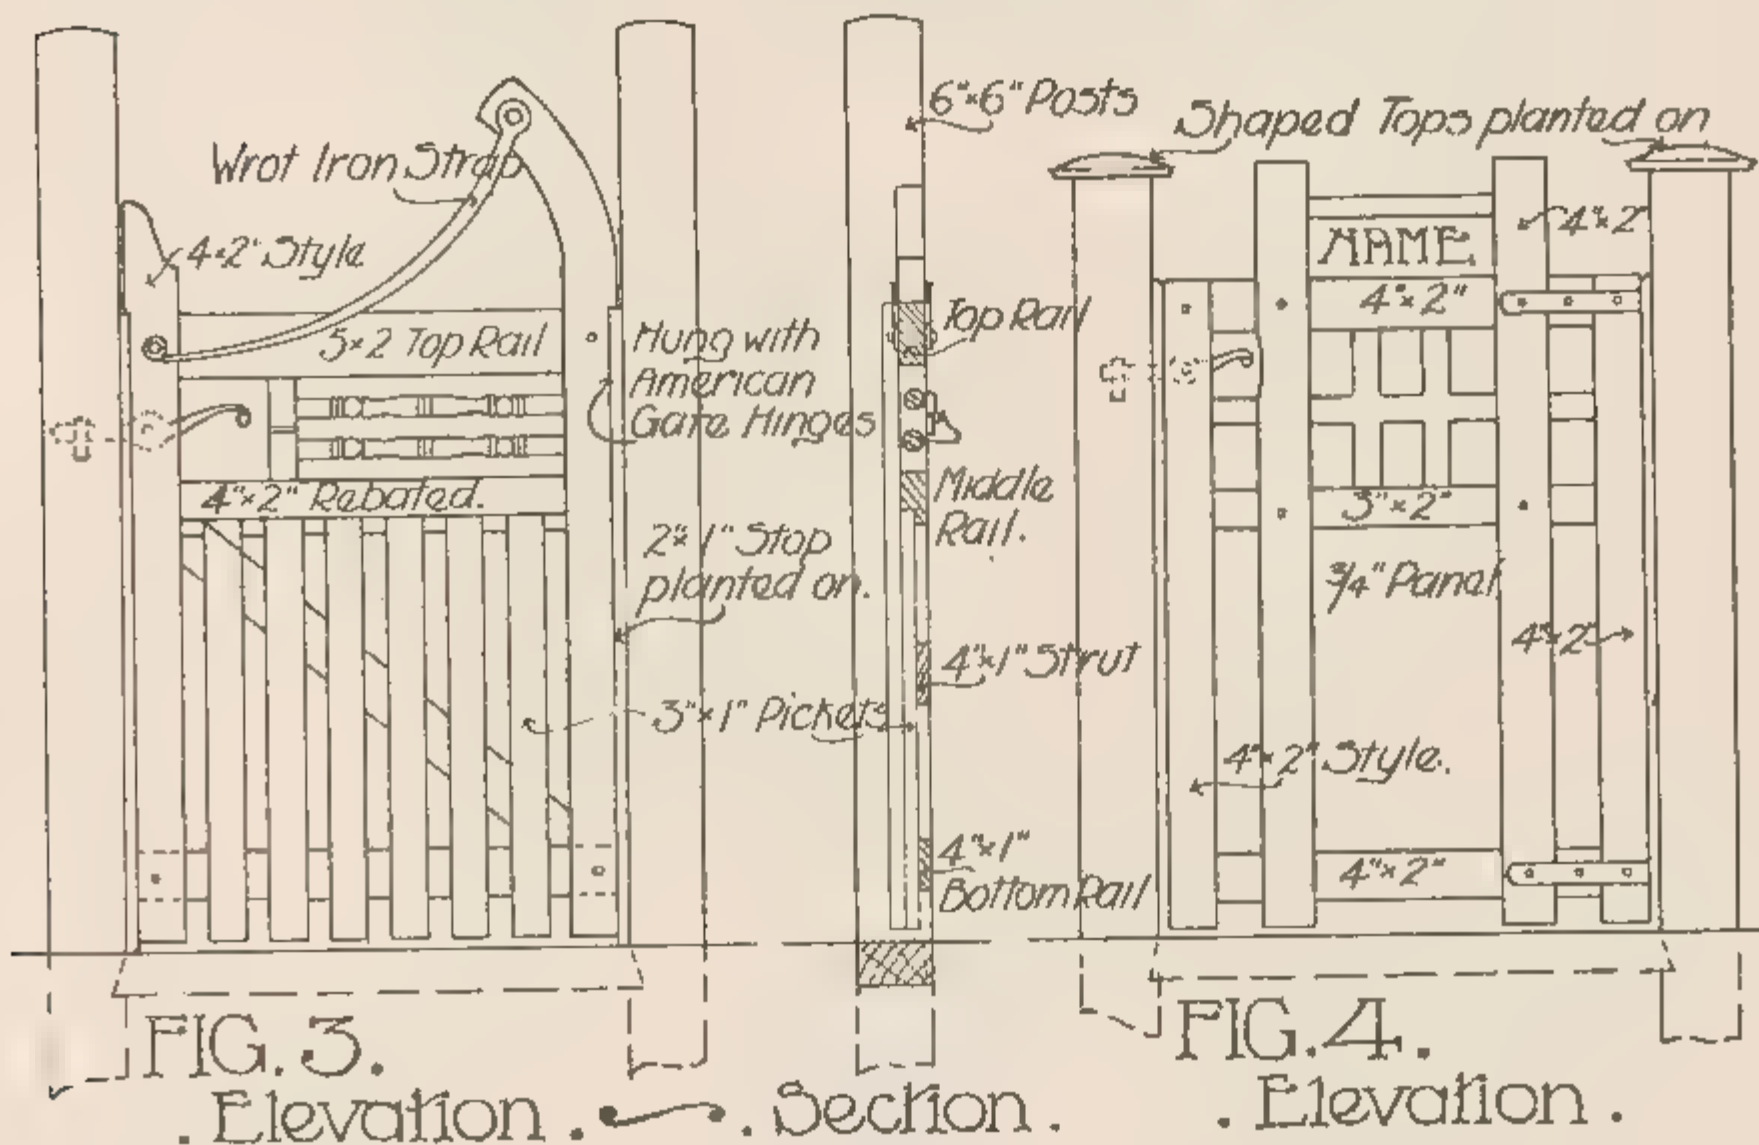 Wrot Iron Strap
4×2" Style
5×2 Top Rail
Hung with
American
Gate Hinges
4"×2" Rebated.
2"×1" Stop
planted on.
3"×1" Pickets
6"×6" Posts
Top Rail
Middle
Rail.
4"×1" Strut
4"×1"
Bottom Rail
Shaped Tops planted on
4"×2"
NAME.
4"×2"
3"×2"
3/4" Panel
4"×2"
4"×2" Style.
4"×2"
FIG. 3.
. Elevation . . Section .
FIG. 4.
. Elevation .